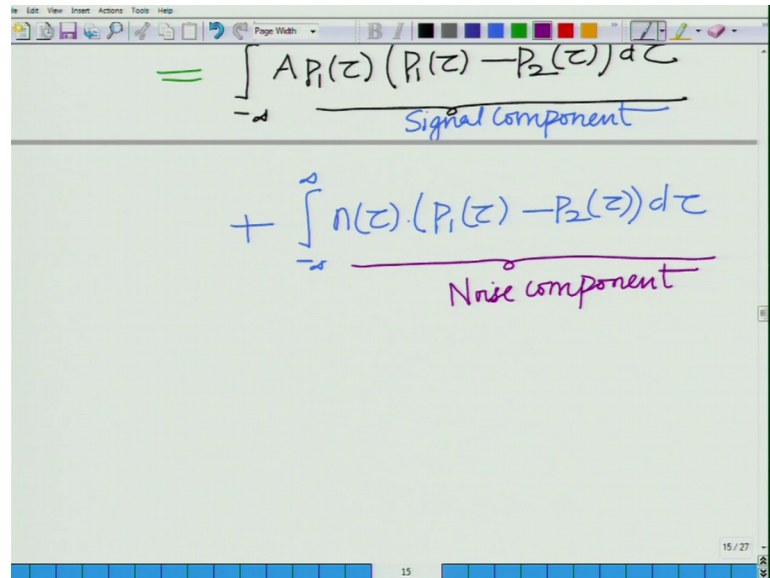 le Edit View Insert Actions Tools Help
Page Width B I
= ∫_{-∞} A p₁(τ) (p₁(τ) − p₂(τ)) dτ
Signal Component
+ ∫_{-∞}^{∞} n(τ).(p₁(τ) − p₂(τ)) dτ
Noise component
15 / 27
15